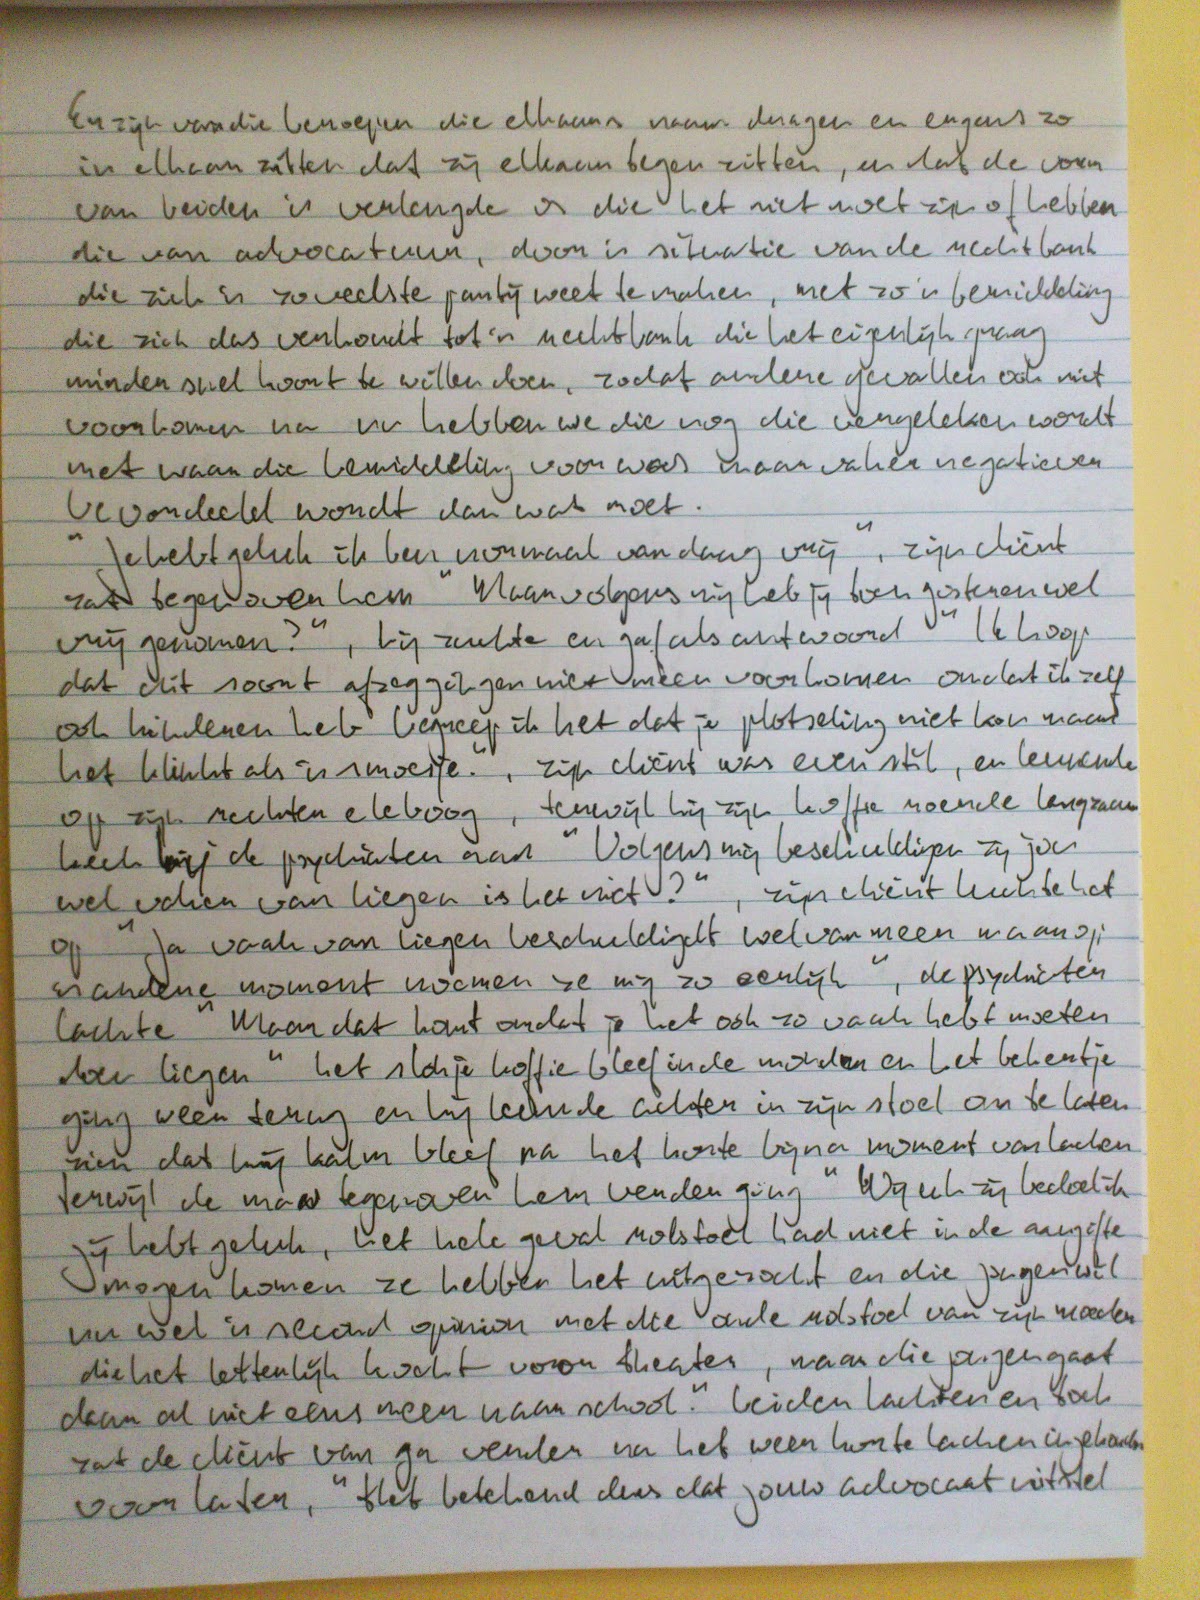 En zijn van die beroepen die elkaars naam dragen en ergens zo
in elkaar zitten dat zij elkaar tegen zitten, en dat de vorm
van beiden is verlengde is die het niet moet zijn of hebben
die van advocatuur, door 'n situatie van de rechtbank
die zich 'n zoveelste partij weet te maken, met zo'n bemiddeling
die zich dus verhoudt tot 'n rechtbank die het eigenlijk graag
minder snel hoort te willen doen, zodat andere gevallen ook niet
voorkomen na nu hebben we die nog die vergeleken wordt
met waar die bemiddeling voor was maar vaker negatiever
bevordeeld wordt dan wat moet.
" Je hebt geluk ik ben normaal vandaag vrij ", zijn cliënt
zat tegenover hem " Maar volgens mij heb jij toen gisteren wel
vrij genomen? ", hij zuchte en gaf als antwoord " Ik hoop
dat dit soort afzeggingen niet meer voorkomen omdat ik zelf
ook kinderen heb begreep ik het dat je plotseling niet kon maar
het klinkt als 'n smoesje. ", zijn cliënt was even stil, en leunende
op zijn rechter eleboog, terwijl hij zijn koffie roerde langzaam
keek hij de psychiater aan " Volgens mij beschuldigen zij jou
wel vaker van liegen is het niet? ", zijn cliënt luchte het
op " Ja vaak van liegen beschuldigdt wel van meer maar op
'n andere moment noemen ze mij zo eerlijk ", de psychiater
lachte " Maar dat komt omdat je het ook zo vaak hebt moeten
doen liegen " het slokje koffie bleef in de monden en het bekertje
ging weer terug en hij leunde achter in zijn stoel om te laten
zien dat hij kalm bleef na het korte bijna moment van lachen
terwijl de man tegenover hem verder ging " Wij uh zij bedoel ik
jij hebt geluk, het hele geval rolstoel had niet in de aangifte
mogen komen ze hebben het uitgezocht en die jongen wil
nu wel 'n second opinion met die oude rolstoel van zijn moeder
die het lettenlijk kocht voor theater, maar die jongen gaat
daar al niet eens meer naar school. " beiden lachten en toch
zat de cliënt van ga verder na het weer korte lachen
voor laten, " Het betekend dus dat jouw advocaat uitstel